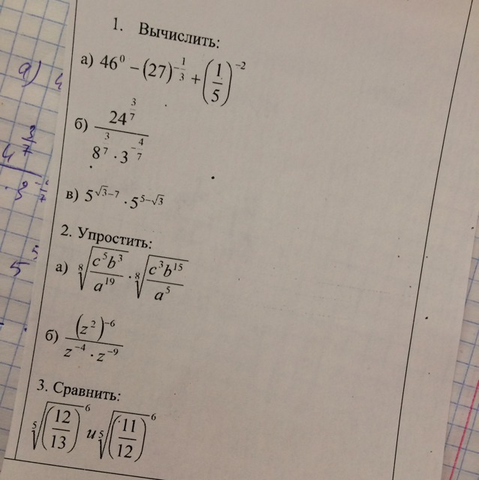 1. Вычислить:
а) 46⁰ − (27)^(−1/3) + (1/5)^(−2)
б) 24^(3/7) / (8^(3/7) · 3^(−4/7))
в) 5^(√3−7) · 5^(5−√3)
2. Упростить:
а) ⁸√(c⁵b³/a¹⁹) · ⁸√(c³b¹⁵/a⁵)
б) (z²)^(−6) / (z^(−4) · z^(−9))
3. Сравнить:
⁵√(12/13)⁶ и ⁵√(11/12)⁶